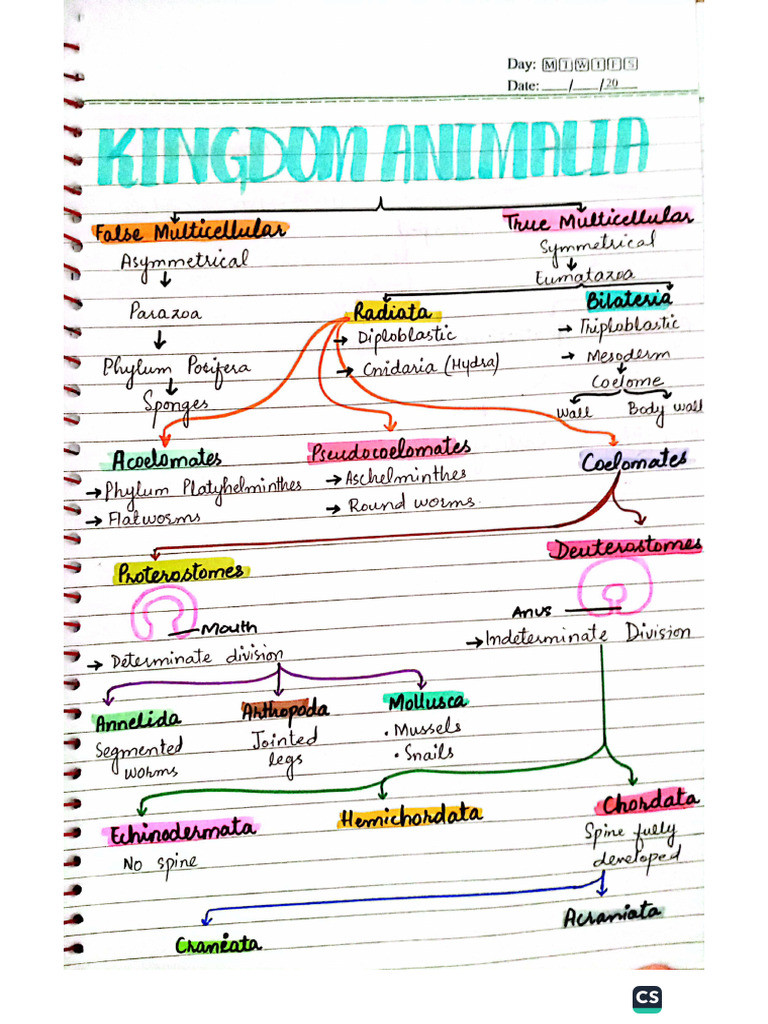 Day: M T W T F S
Date: ___/___/20___
KINGDOM ANIMALIA
False Multicellular
True Multicellular
Asymmetrical
Symmetrical
Eumatazoa
Parazoa
Radiata
Bilateria
→ Diploblastic
→ Triploblastic
Phylum Porifera
→ Cnidaria (Hydra)
→ Mesoderm
Coelome
Sponges
Wall
Body wall
Acoelomates
Pseudocoelomates
Coelomates
→ Phylum Platyhelminthes
→ Aschelminthes
→ Flatworms
→ Round worms
Proterostomes
Deuterostomes
Mouth
Anus
→ Determinate division
→ Indeterminate Division
Annelida
Arthopoda
Mollusca
Segmented worms
Jointed legs
• Mussels
• Snails
Echinodermata
Hemichordata
Chordata
No spine
Spine fully
developed
Craniata
Acraniata
CS